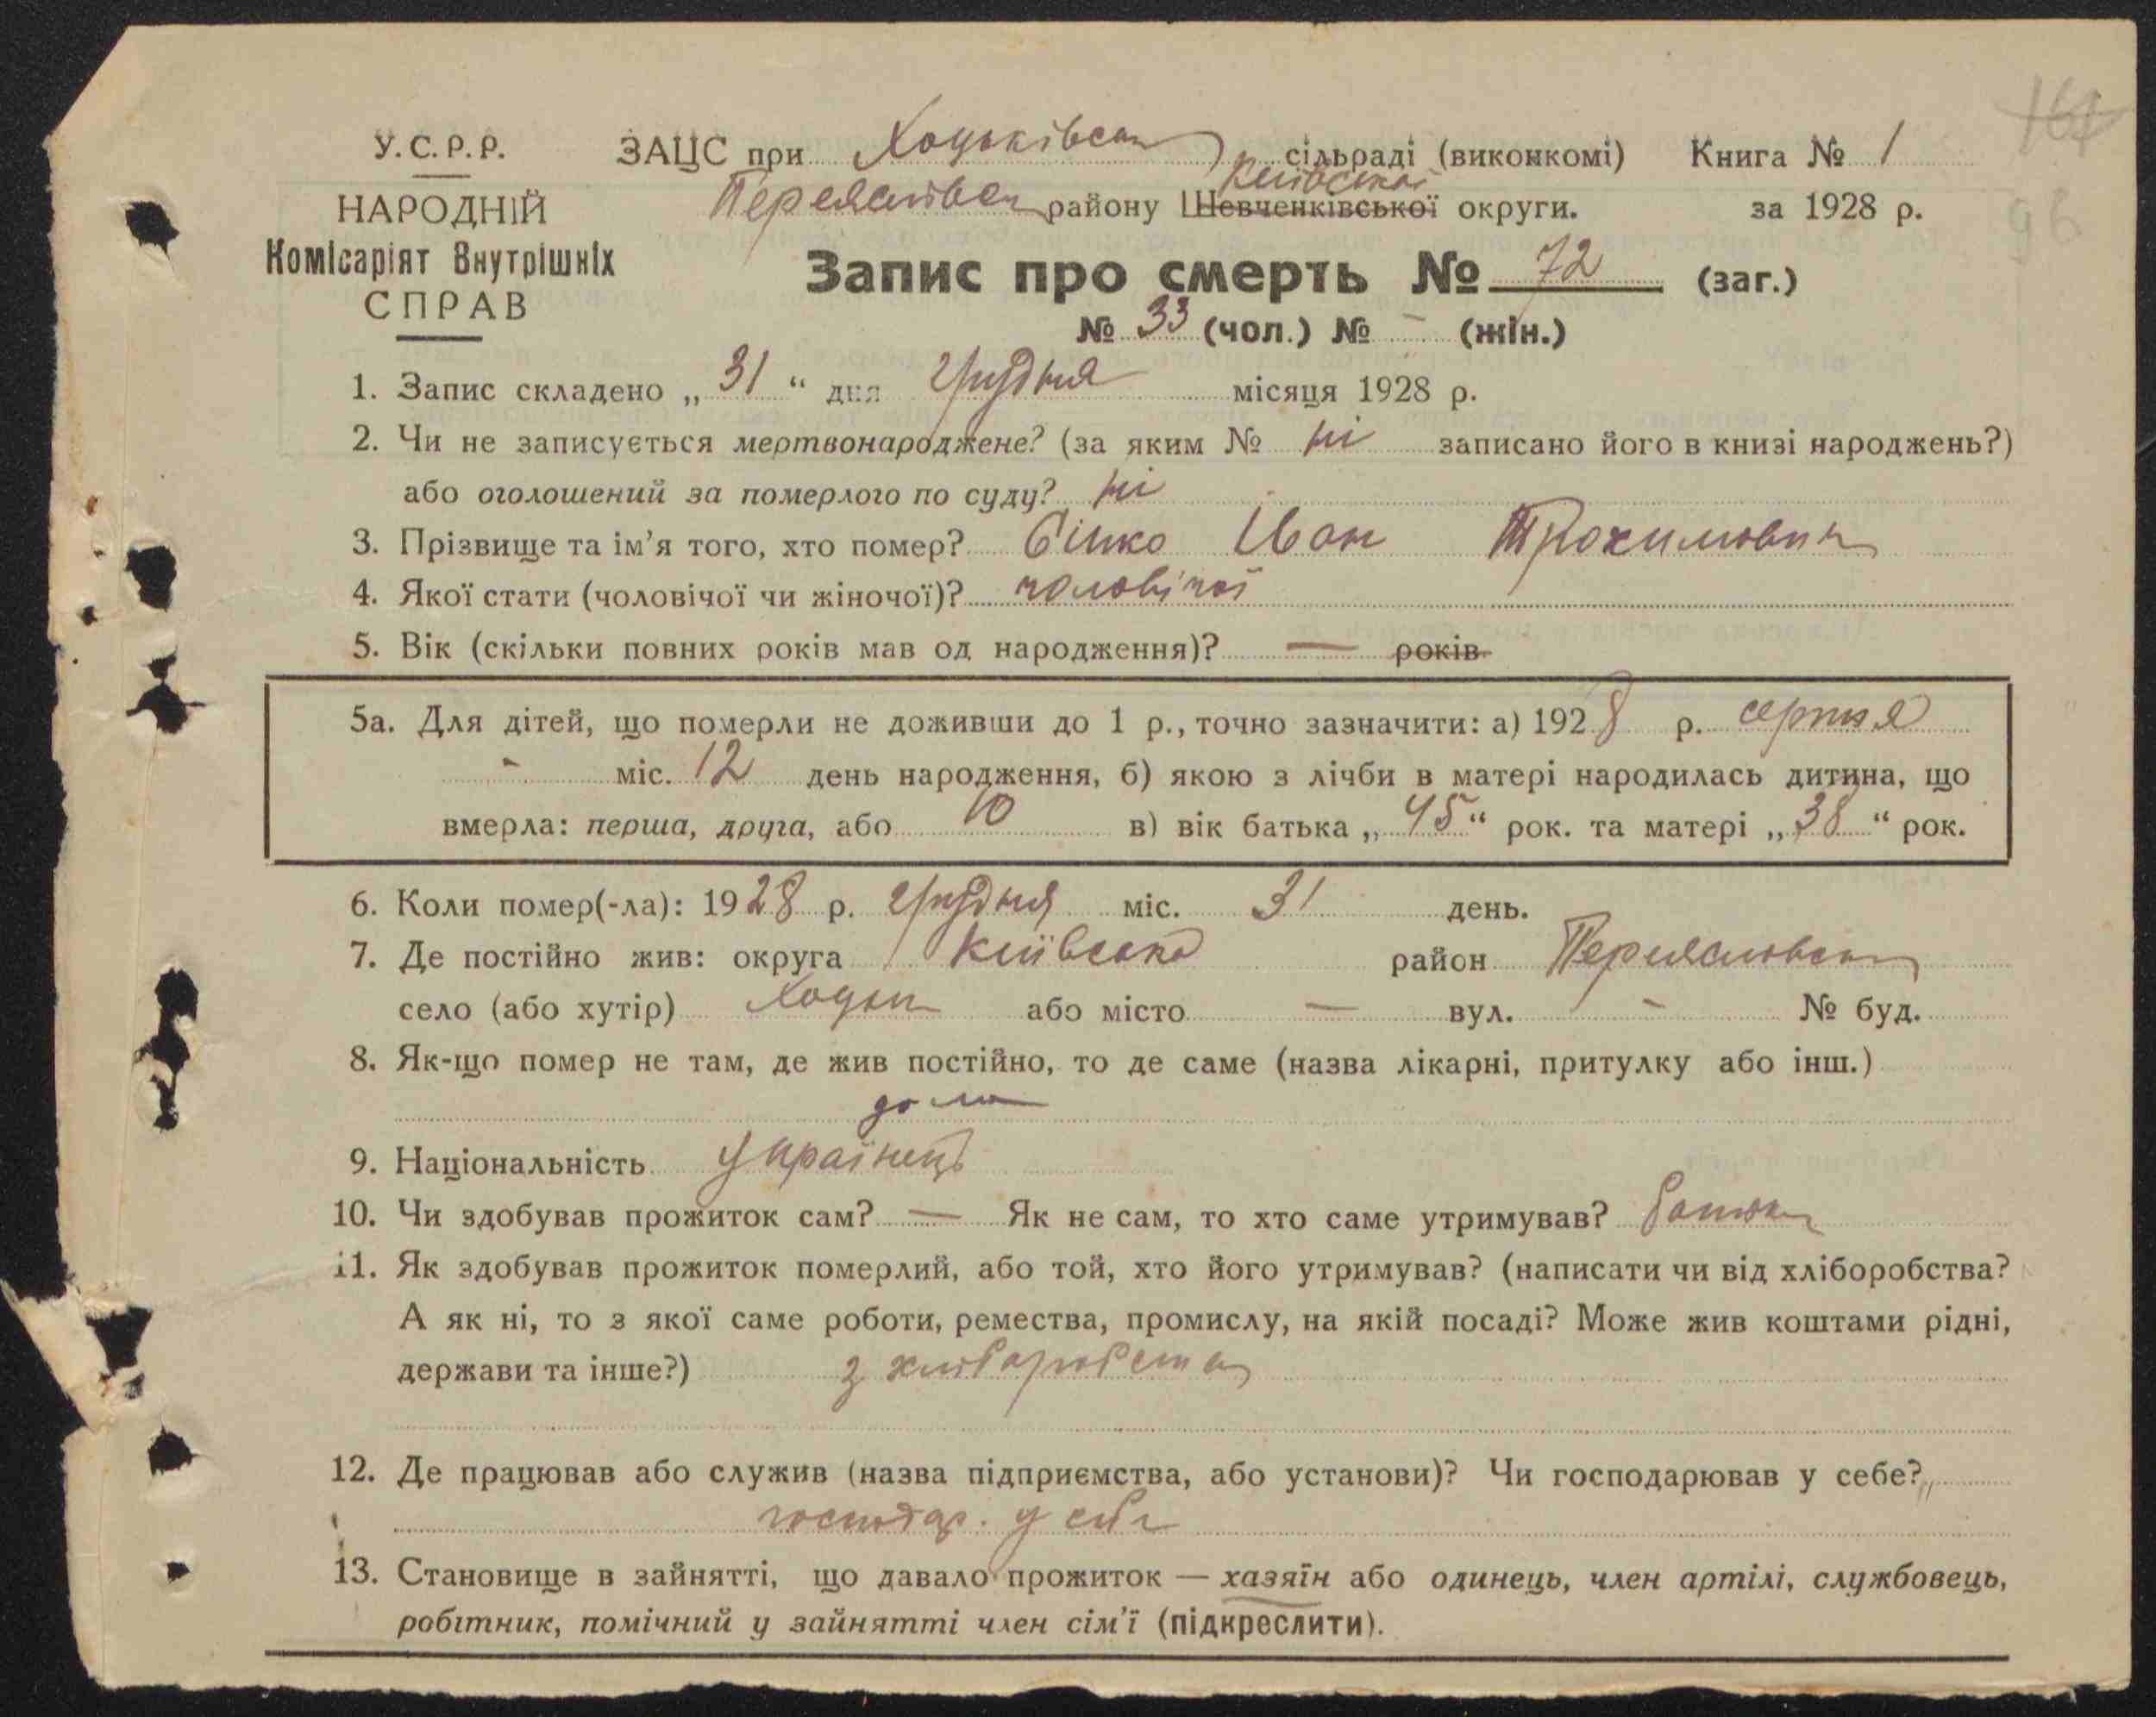 164
У.С.Р.Р. ЗАЦС при Хоцьківськ сільраді (виконкомі) Книга № 1
НАРОДНІЙ Переяслівськ району Шевченківської Київської округи. за 1928 р. 96
Комісаріят Внутрішніх
СПРАВ
Запис про смерть № 72 (заг.)
№ 33 (чол.) № - (жін.)
1. Запис складено „ 31 “ дня грудня місяця 1928 р.
2. Чи не записується мертвонароджене? (за яким № ні записано його в книзі народжень?)
або оголошений за померлого по суду? ні
3. Прізвище та ім’я того, хто помер? Іван Трохимович
4. Якої стати (чоловічої чи жіночої)? чоловічої
5. Вік (скільки повних років мав од народження)? — років
5а. Для дітей, що померли не доживши до 1 р., точно зазначити: а) 1928 р. серпня
- міс. 12 день народження, б) якою з лічби в матері народилась дитина, що
вмерла: перша, друга, або 10 в) вік батька „ 45 “ рок. та матері „ 38 “ рок.
6. Коли помер(-ла): 1928 р. грудня міс. 31 день.
7. Де постійно жив: округа Київська район Переяслівськ
село (або хутір) Хоцьки або місто — вул. - № буд.
8. Як-що помер не там, де жив постійно, то де саме (назва лікарні, притулку або інш.)
дома
9. Національність українець
10. Чи здобував прожиток сам? — Як не сам, то хто саме утримував? батьки
11. Як здобував прожиток померлий, або той, хто його утримував? (написати чи від хліборобства?
А як ні, то з якої саме роботи, ремества, промислу, на якій посаді? Може жив коштами рідні,
держави та інше?) з хліборобства
12. Де працював або служив (назва підприємства, або установи)? Чи господарював у себе?
господар. у себе
13. Становище в зайнятті, що давало прожиток — хазяїн або одинець, член артілі, службовець,
робітник, помічний у зайнятті член сім’ї (підкреслити).